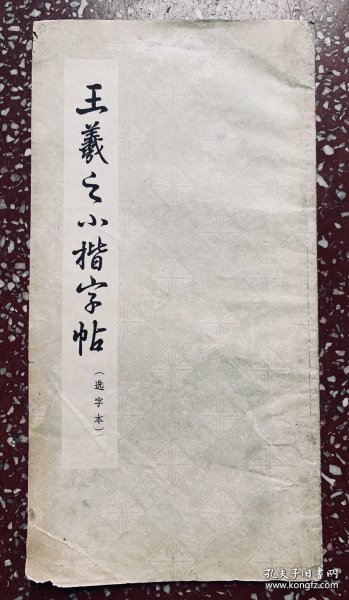 王羲之小楷字帖
（选字本）
孔夫子旧书网
www.kongfz.com